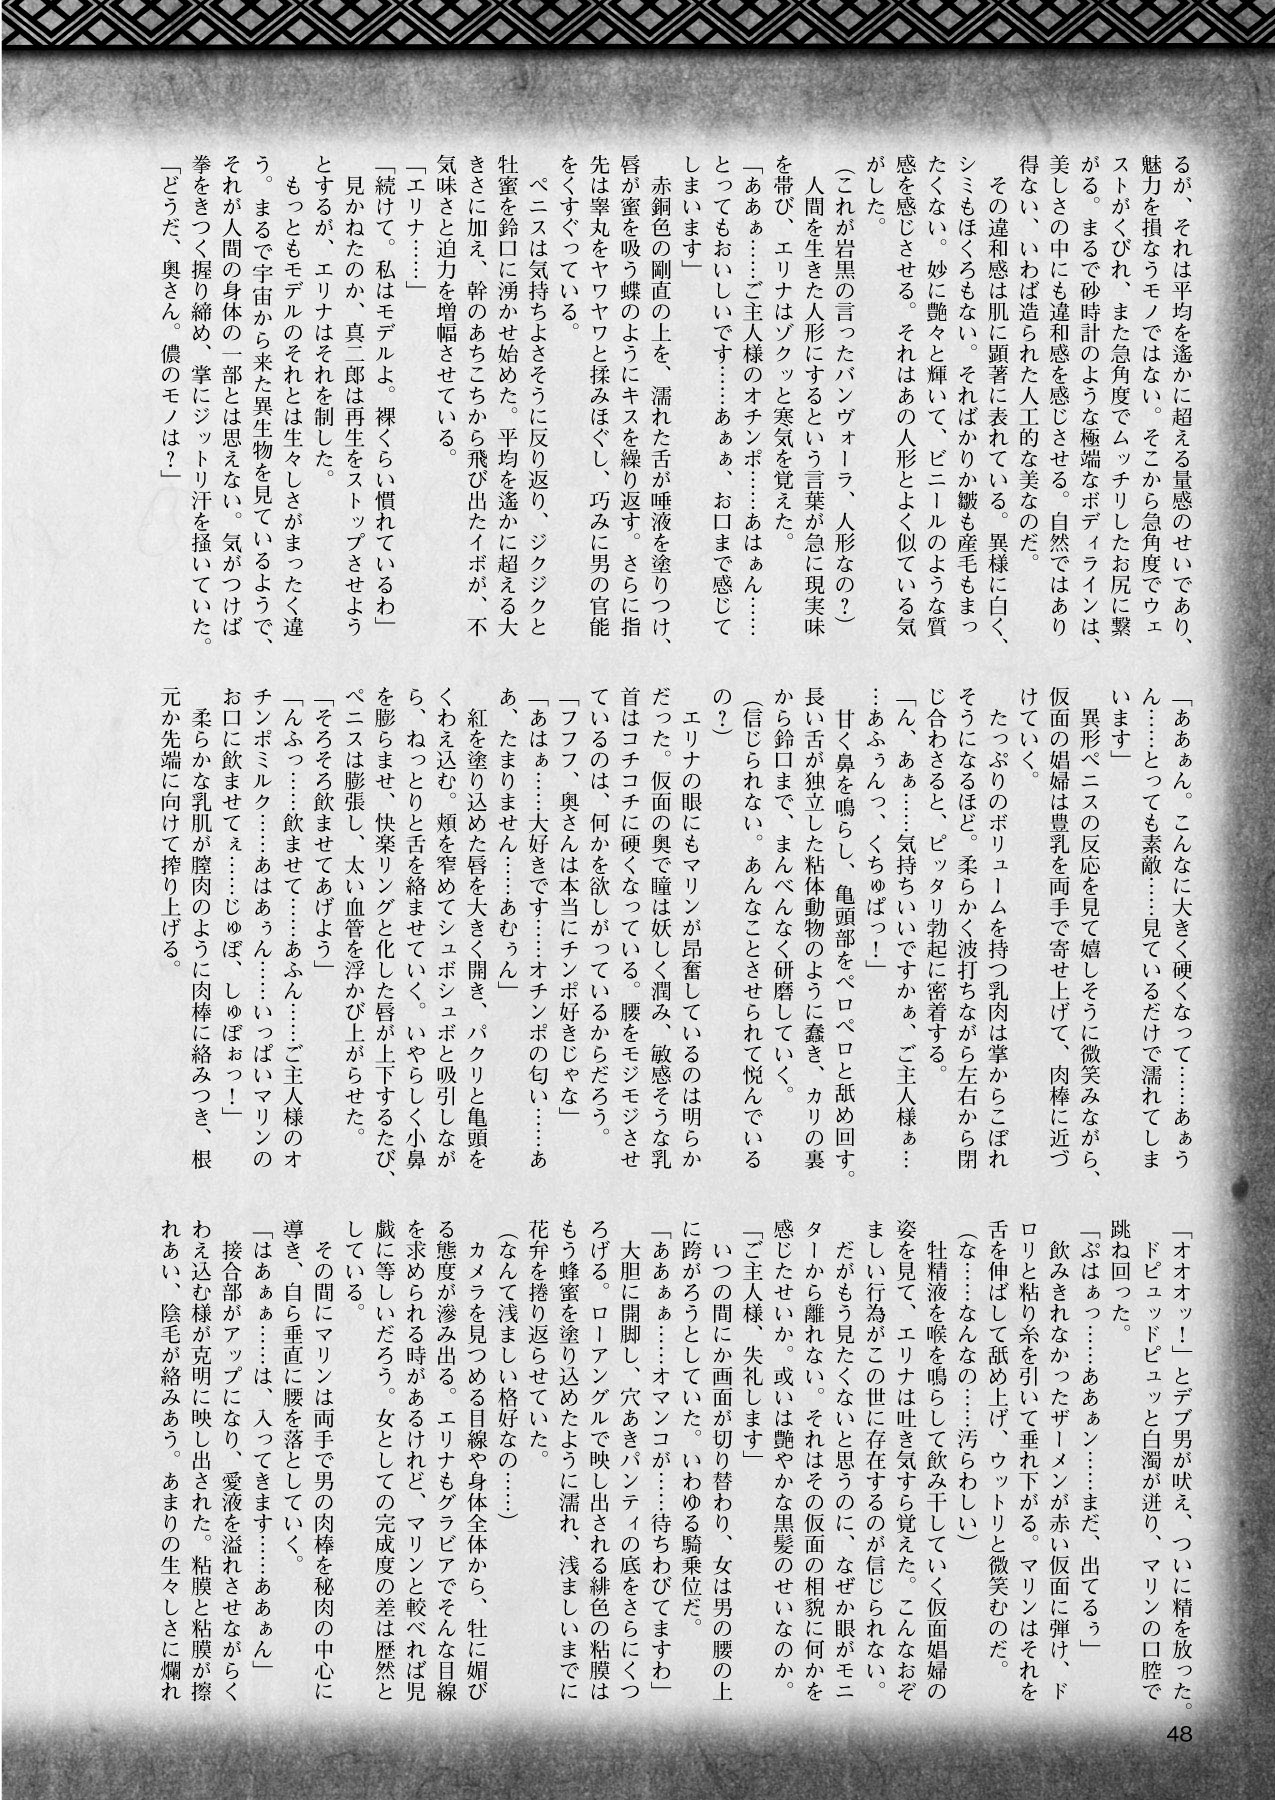 るが、それは平均を遙かに超える量感のせいであり、
魅力を損なうモノではない。そこから急角度でウェ
ストがくびれ、また急角度でムッチリしたお尻に繋
がる。まるで砂時計のような極端なボディラインは、
美しさの中にも違和感を感じさせる。自然ではあり
得ない、いわば造られた人工的な美なのだ。
その違和感は肌に顕著に表れている。異様に白く、
シミもほくろもない。そればかりか皺も産毛もまっ
たくない。妙に艶々と輝いて、ビニールのような質
感を感じさせる。それはあの人形とよく似ている気
がした。
(これが岩黒の言ったバンヴォーラ、人形なの?)
人間を生きた人形にするという言葉が急に現実味
を帯び、エリナはゾクッと寒気を覚えた。
「ああぁ……ご主人様のオチンポ……あはぁん……
とってもおいしいです……あぁぁ、お口まで感じて
しまいます」
赤銅色の剛直の上を、濡れた舌が唾液を塗りつけ、
唇が蜜を吸う蝶のようにキスを繰り返す。さらに指
先は睾丸をヤワヤワと揉みほぐし、巧みに男の官能
をくすぐっている。
ペニスは気持ちよさそうに反り返り、ジクジクと
牡蜜を鈴口に湧かせ始めた。平均を遙かに超える大
きさに加え、幹のあちこちから飛び出たイボが、不
気味さと迫力を増幅させている。
「エリナ……」
「続けて。私はモデルよ。裸くらい慣れているわ」
見かねたのか、真二郎は再生をストップさせよう
とするが、エリナはそれを制した。
もっともモデルのそれとは生々しさがまったく違
う。まるで宇宙から来た異生物を見ているようで、
それが人間の身体の一部とは思えない。気がつけば
拳をきつく握り締め、掌にジットリ汗を掻いていた。
「どうだ、奥さん。儂のモノは?」
「ああぁん。こんなに大きく硬くなって……あぁぅ
ん……とっても素敵……見ているだけで濡れてしま
います」
異形ペニスの反応を見て嬉しそうに微笑みながら、
仮面の娼婦は豊乳を両手で寄せ上げて、肉棒に近づ
けていく。
たっぷりのボリュームを持つ乳肉は掌からこぼれ
そうになるほど。柔らかく波打ちながら左右から閉
じ合わさると、ピッタリ勃起に密着する。
「ん、あぁ……気持ちいいですかぁ、ご主人様ぁ…
…あふぅんっ、くちゅぱっ!」
甘く鼻を鳴らし、亀頭部をペロペロと舐め回す。
長い舌が独立した粘体動物のように蠢き、カリの裏
から鈴口まで、まんべんなく研磨していく。
(信じられない。あんなことさせられて悦んでいる
の?)
エリナの眼にもマリンが昂奮しているのは明らか
だった。仮面の奥で瞳は妖しく潤み、敏感そうな乳
首はコチコチに硬くなっている。腰をモジモジさせ
ているのは、何かを欲しがっているからだろう。
「フフフ、奥さんは本当にチンポ好きじゃな」
「あはぁ……大好きです……オチンポの匂い……あ
あ、たまりません……あむぅん」
紅を塗り込めた唇を大きく開き、パクリと亀頭を
くわえ込む。頬を窄めてシュボシュボと吸引しなが
ら、ねっとりと舌を絡ませていく。いやらしく小鼻
を膨らませ、快楽リングと化した唇が上下するたび、
ペニスは膨張し、太い血管を浮かび上がらせた。
「そろそろ飲ませてあげよう」
「んふっ……飲ませて……あふん……ご主人様のオ
チンポミルク……あはあぅん……いっぱいマリンの
お口に飲ませてぇ……じゅぽ、しゅぽぉっ!」
柔らかな乳肌が膣肉のように肉棒に絡みつき、根
元か先端に向けて搾り上げる。
「オオオッ!」とデブ男が吠え、ついに精を放った。
ドピュッドピュッと白濁が迸り、マリンの口腔で
跳ね回った。
「ぷはぁっ……ああぁン……まだ、出てるぅ」
飲みきれなかったザーメンが赤い仮面に弾け、ド
ロリと粘り糸を引いて垂れ下がる。マリンはそれを
舌を伸ばして舐め上げ、ウットリと微笑むのだ。
(な……なんなの……汚らわしい)
牡精液を喉を鳴らして飲み干していく仮面娼婦の
姿を見て、エリナは吐き気すら覚えた。こんなおぞ
ましい行為がこの世に存在するのが信じられない。
だがもう見たくないと思うのに、なぜか眼がモニ
ターから離れない。それはその仮面の相貌に何かを
感じたせいか。或いは艶やかな黒髪のせいなのか。
「ご主人様、失礼します」
いつの間にか画面が切り替わり、女は男の腰の上
に跨がろうとしていた。いわゆる騎乗位だ。
「ああぁぁ……オマンコが……待ちわびてますわ」
大胆に開脚し、穴あきパンティの底をさらにくつ
ろげる。ローアングルで映し出される緋色の粘膜は
もう蜂蜜を塗り込めたように濡れ、浅ましいまでに
花弁を捲り返らせていた。
(なんて浅ましい格好なの……)
カメラを見つめる目線や身体全体から、牡に媚び
る態度が滲み出る。エリナもグラビアでそんな目線
を求められる時があるけれど、マリンと較べれば児
戯に等しいだろう。女としての完成度の差は歴然と
している。
その間にマリンは両手で男の肉棒を秘肉の中心に
導き、自ら垂直に腰を落としていく。
「はあぁぁ……は、入ってきます……ああぁん」
接合部がアップになり、愛液を溢れさせながらく
わえ込む様が克明に映し出された。粘膜と粘膜が擦
れあい、陰毛が絡みあう。あまりの生々しさに爛れ
48